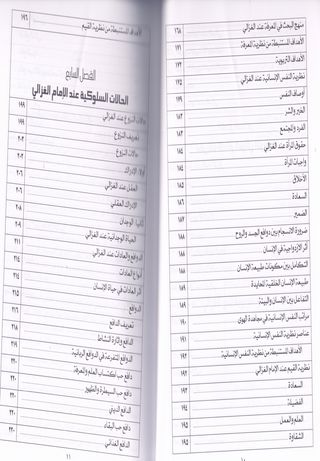 منهج البحث في المعرفة عند الغزالي ١٦٨
الأهداف المستنبطة من نظرية المعرفة ١٧١
الأهداف التربوية ١٧٢
نظرية النفس الإنسانية عند الغزالي ١٧٥
أوصاف النفس ١٧٩
الخير والشر ١٨٢
الفرد والمجتمع ١٨٣
حقوق المرأة عند الغزالي ١٨٤
واجبات المرأة ١٨٥
الأخلاق ١٨٥
السعادة ١٨٦
الضمير ١٨٧
ضرورة الانسجام بين دوافع الجسد والروح ١٨٨
أثر الازدواجية في الإنسان ١٨٨
التكامل بين مكونات طبيعة الإنسان ١٨٨
طبيعة الإنسان الخلقية المحايدة ١٨٩
التفاعل بين الإنسان والبيئة ١٨٩
مراتب النفس الإنسانية في مجاهدة الهوى ١٩٠
عناصر نظرية النفس الإنسانية ١٩١
الأهداف المستنبطة من نظرية النفس الإنسانية ١٩٢
نظرية القيم عند الإمام الغزالي ١٩٣
السعادة ١٩٣
الفضيلة ١٩٤
العلم والعمل ١٩٥
الشقاوة ١٩٥
الأهداف المستنبطة من نظرية القيم ١٩٦
الفصل السابع
الحالات السلوكية عند الإمام الغزالي
حالات النزوع عند الغزالي ١٩٩
تعريف النزوع ١٩٩
حالات النزوع ٢٠٢
أولا: الإدراك ٢٠٣
العقل عند الغزالي ٢٠٦
الإدراك العقلي ٢٠٦
ثانيا: الوجدان ٢٠٨
الحياة الوجدانية عند الغزالي ٢٠٩
الدوافع والعادات عند الغزالي ٢١٤
أنواع العادات ٢١٤
أثر العادات في حياة الإنسان ٢١٥
الدوافع ٢١٦
تعريف الدافع ٢١٨
الدوافع وإثارة النشاط ٢١٩
الدوافع المتفرعة عن الدوافع الربانية ٢٢٠
دافع حب اكتساب العلم والمعرفة ٢٢٠
دافع حب السيطرة والظهور ٢٢٠
الدافع الديني ٢٢٠
دافع حب البقاء ٢٢٠
الدافع الغذائي ٢٢٠
١١